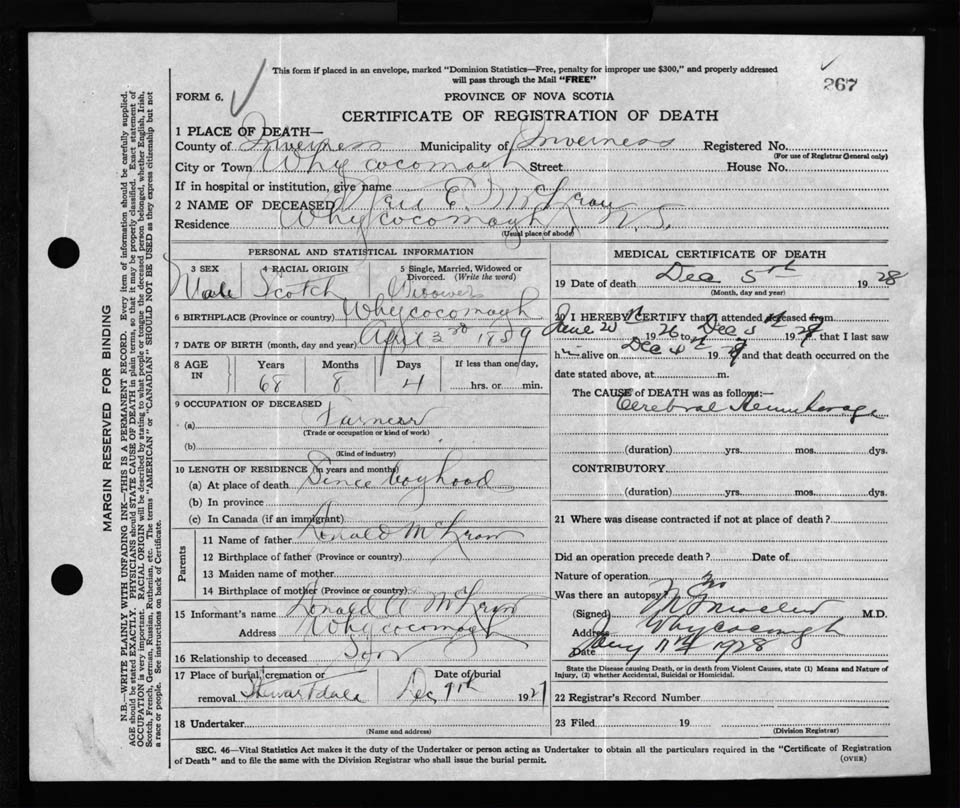 This form if placed in an envelope, marked "Dominion Statistics—Free, penalty for improper use $300," and properly addressed
will pass through the Mail "FREE"
267
FORM 6.
PROVINCE OF NOVA SCOTIA
CERTIFICATE OF REGISTRATION OF DEATH
1 PLACE OF DEATH—
County of Inverness Municipality of Inverness Registered No.
(For use of Registrar General only)
City or Town Whycocomagh Street House No.
If in hospital or institution, give name
2 NAME OF DECEASED Neil E.
Residence Whycocomagh N.S.
(Usual place of abode)
PERSONAL AND STATISTICAL INFORMATION
3 SEX 4 RACIAL ORIGIN 5 Single, Married, Widowed or
Divorced. (Write the word)
Male Scotch Widower
6 BIRTHPLACE (Province or country) Whycocomagh
7 DATE OF BIRTH (month, day and year) April 3rd 1859
8 AGE IN Years Months Days If less than one day,
68 8 4 hrs. or min.
9 OCCUPATION OF DECEASED
(a) Farmer
(Trade or occupation or kind of work)
(b)
(Kind of industry)
10 LENGTH OF RESIDENCE (in years and months)
(a) At place of death Since boyhood
(b) In province
(c) In Canada (if an immigrant)
Parents
11 Name of father Ronald
12 Birthplace of father (Province or country)
13 Maiden name of mother
14 Birthplace of mother (Province or country)
15 Informant's name Ronald A
Address Whycocomagh
16 Relationship to deceased Son
17 Place of burial, cremation or Date of burial
removal Stewartdale Dec 9th 1927
18 Undertaker
(Name and address)
MEDICAL CERTIFICATE OF DEATH
19 Date of death Dec 5th 1928
(Month, day and year)
20 I HEREBY CERTIFY that I attended deceased from
June 20th 1926 to Dec 5th 19 that I last saw
him alive on Dec 19 and that death occurred on the
date stated above, at m.
The CAUSE OF DEATH was as follows:—
Cerebral Hemorrhage
(duration) yrs. mos. dys.
CONTRIBUTORY
(duration) yrs. mos. dys.
21 Where was disease contracted if not at place of death?
Did an operation precede death? Date of
Nature of operation
Was there an autopsy? No
(Signed) M.D.
Address Whycocomagh
Date Jany 11th 1928
State the Disease causing Death, or in death from Violent Causes, state (1) Means and Nature of
Injury, (2) whether Accidental, Suicidal or Homicidal.
22 Registrar's Record Number
23 Filed 19
(Division Registrar)
SEC. 46—Vital Statistics Act makes it the duty of the Undertaker or person acting as Undertaker to obtain all the particulars required in the "Certificate of Registration
of Death" and to file the same with the Division Registrar who shall issue the burial permit.
(OVER)
MARGIN RESERVED FOR BINDING
N.B.—WRITE PLAINLY WITH UNFADING INK—THIS IS A PERMANENT RECORD. Every item of information should be carefully supplied.
AGE should be stated EXACTLY. PHYSICIANS should STATE CAUSE OF DEATH in plain terms, so that it may be properly classified. Exact statement of
OCCUPATION is very important. RACIAL ORIGIN will be described by stating to what people or tongue the deceased person belonged, whether English, Irish,
Scotch, French, German, Russian, Ruthenian, etc. The terms "AMERICAN" or "CANADIAN" SHOULD NOT BE USED as they express citizenship but not
a race or people. See instructions on back of Certificate.